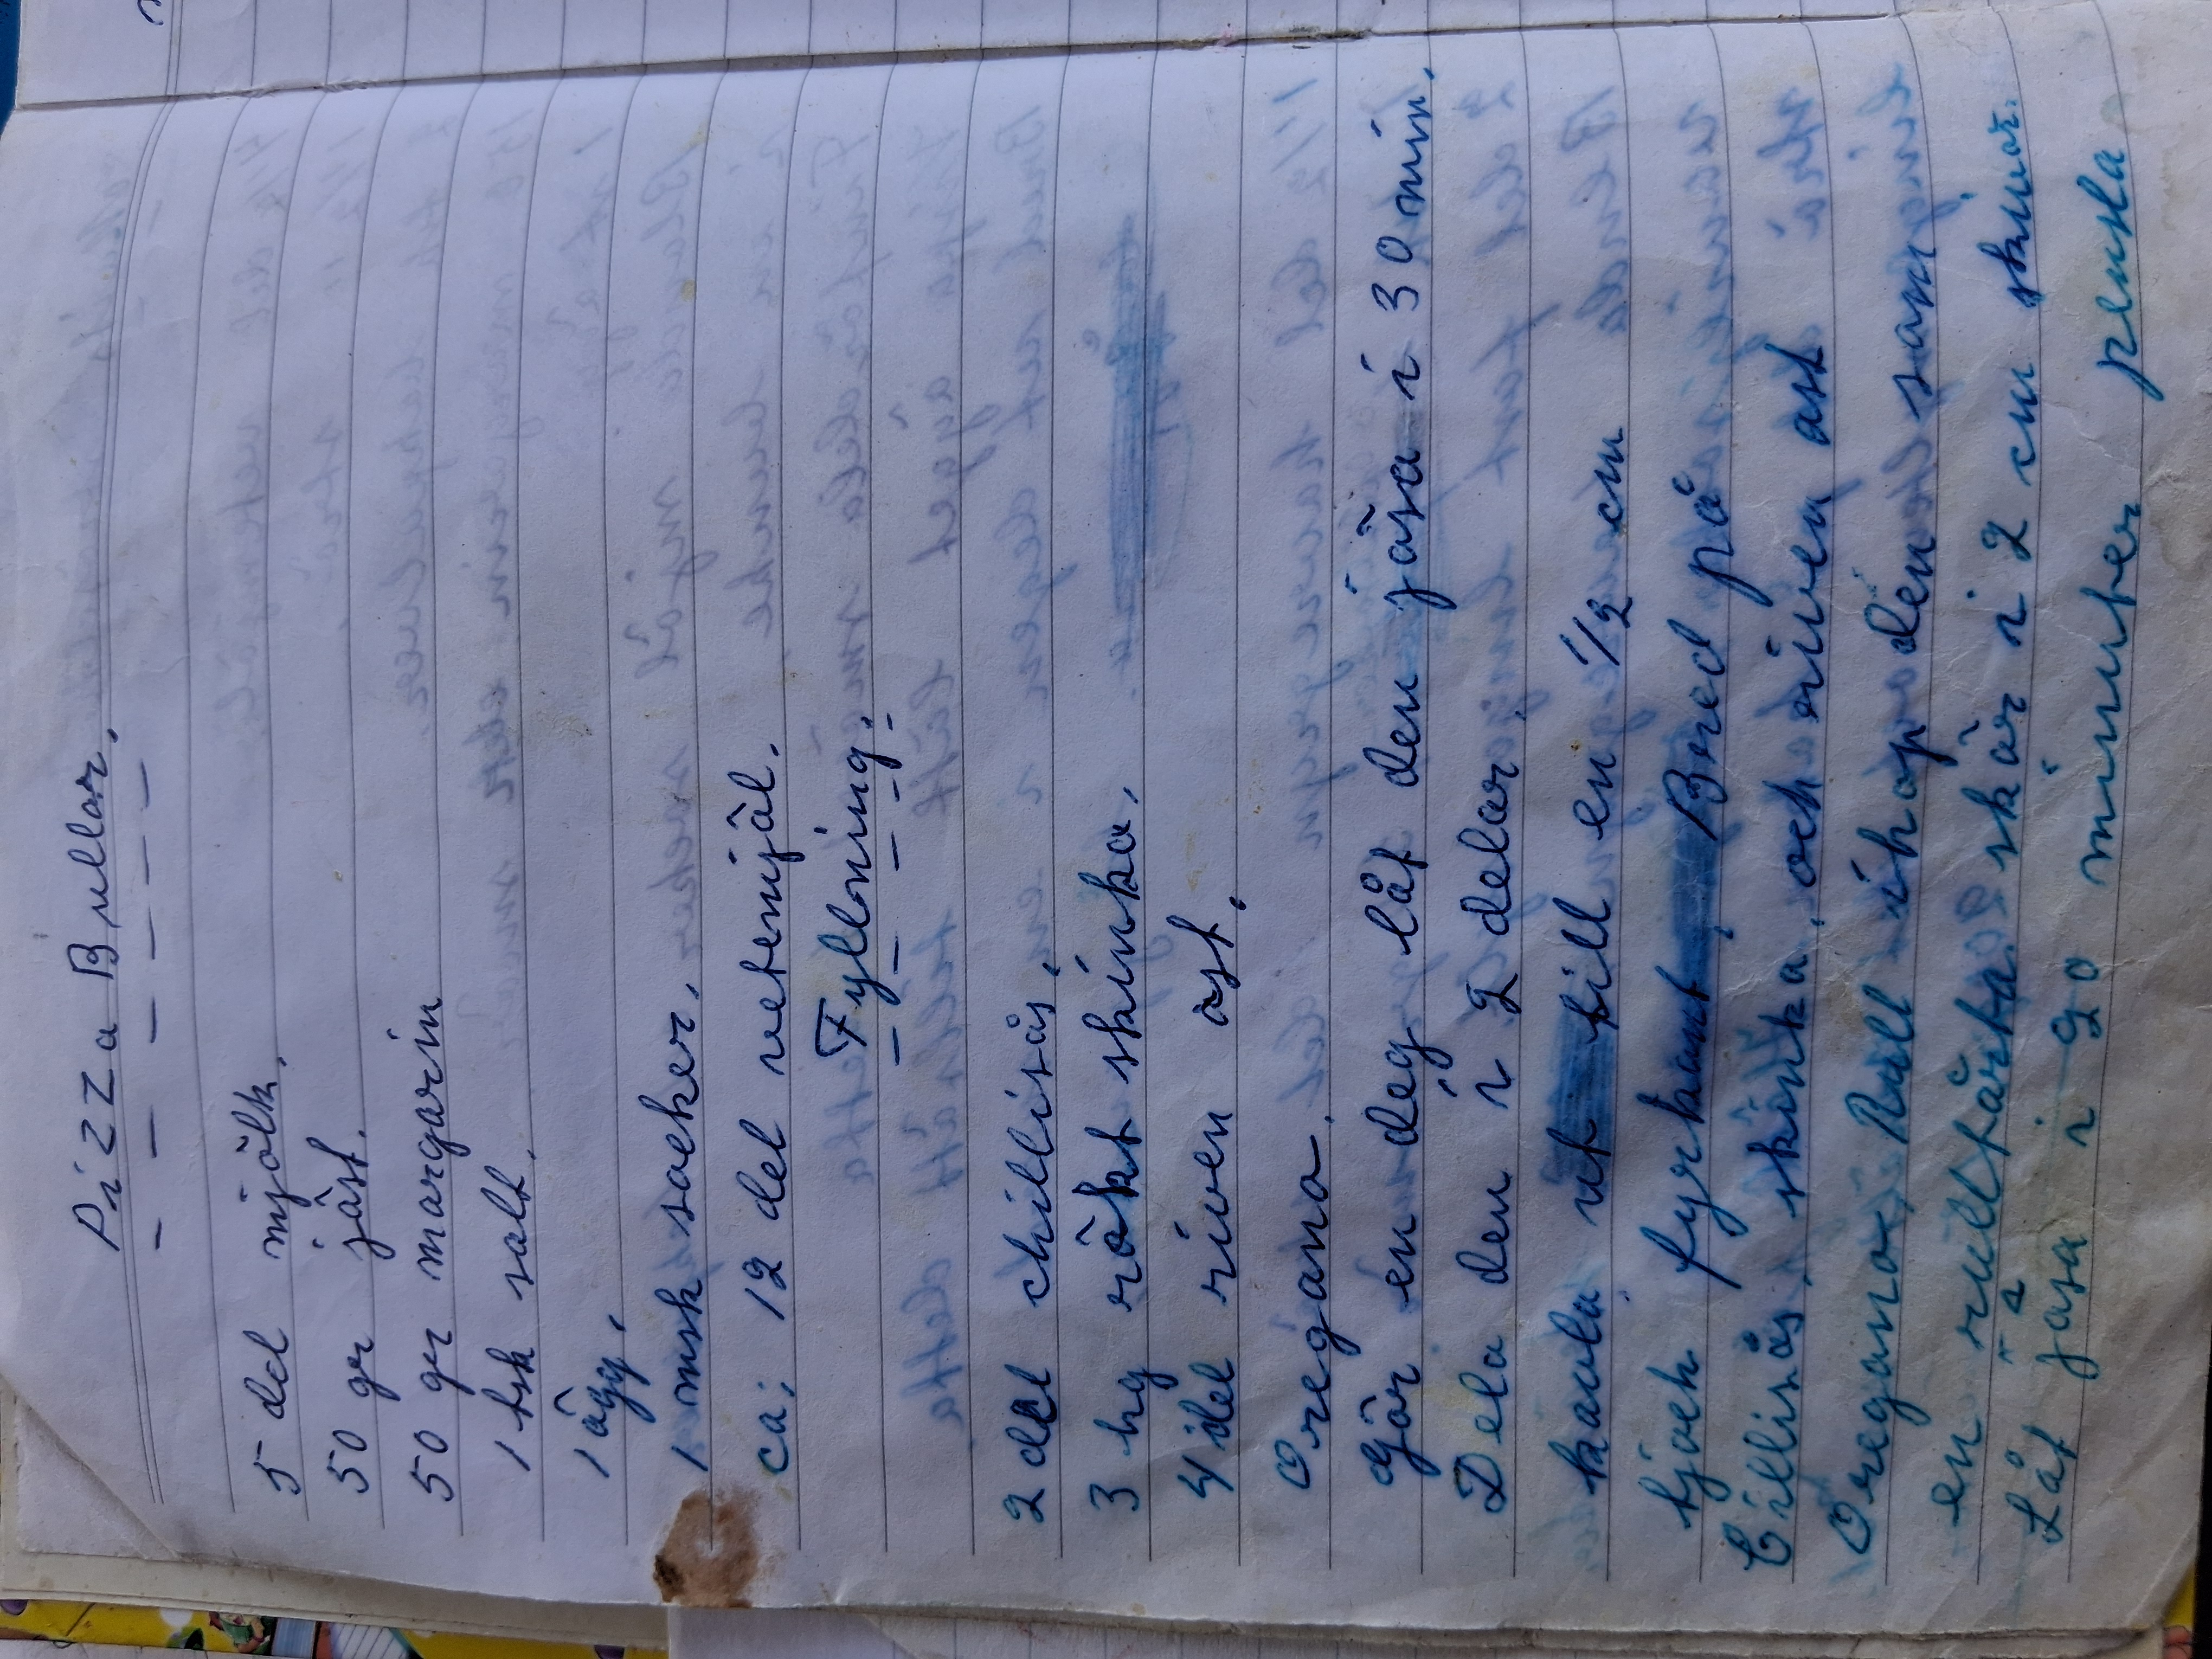 Pizza Bullar.
5 del mjölk.
50 gr jäst.
50 gr margarin
1 tsk salt.
1 ägg.
1 msk socker.
ca: 12 del vetemjöl.
Fyllning:
2 del chillisås.
3 hg rökt skinka.
4 del riven ost.
Oregano.
Gör en deg låt den jäsa i 30 min.
Dela den i 2 delar.
kavla ut till en 1/2 cm
tjock fyrkant Bred på
Cillisås, skinka, och riven ost
Oregano, Rull ihop den som
en rulltårta skär i 2 cm skivor.
Låt jäsa i 20 minuter pensla